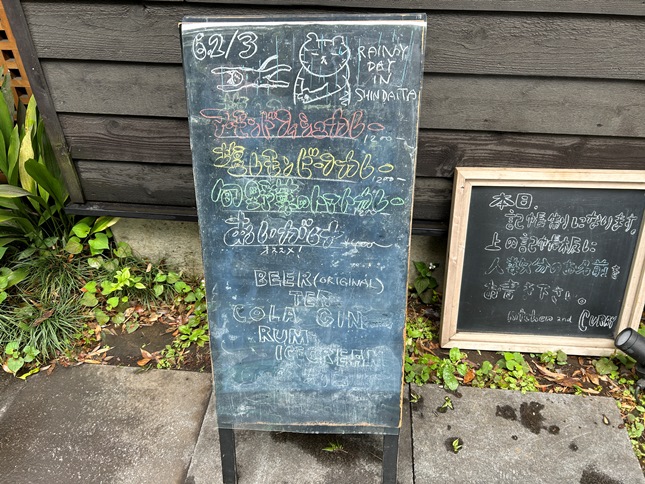 6 2/3
RAINY
DAY
IN
SHINDAITA
アーモンドフィッシュカレー
1200-
塩レモンビーフカレー
1200-
旬野菜のトマトカレー
あいがけ
オススメ!
BEER(ORIGINAL)
TEA
COLA GIN
RUM
ICE CREAM
本日、
記帳制になります。
上の記帳板に
人数分のお名前を
お書き下さい。
and CURRY